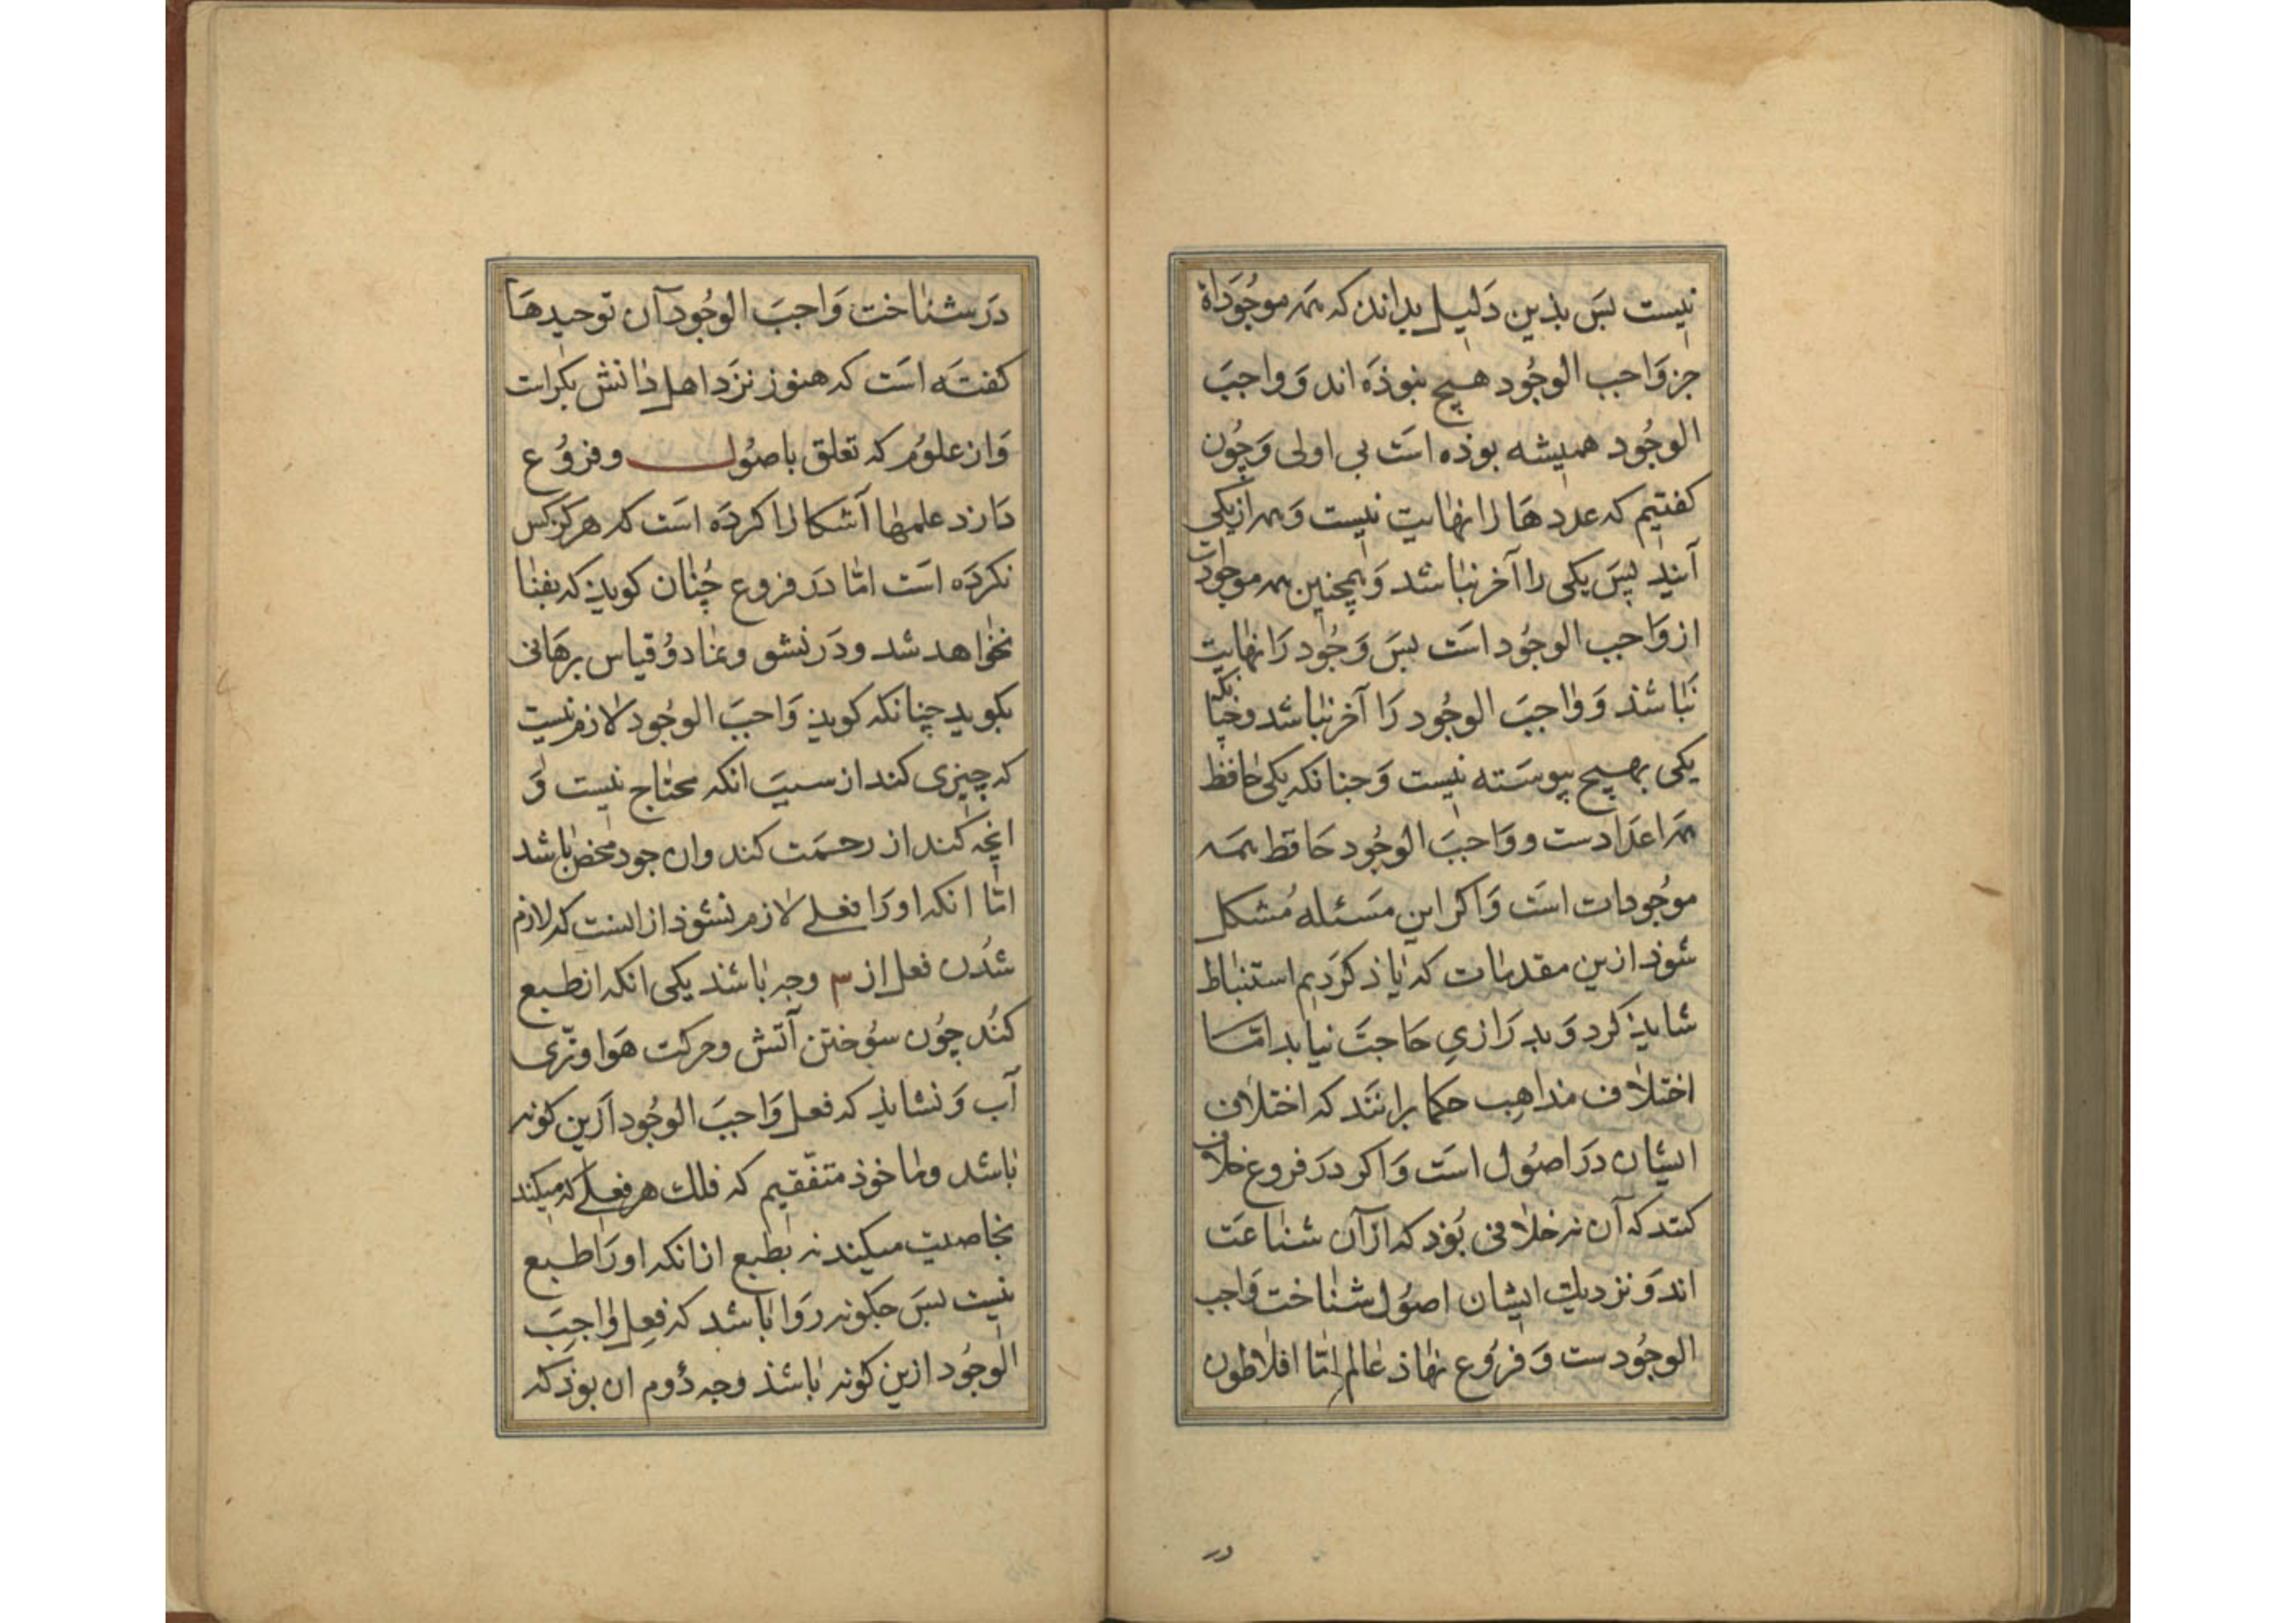 نیست بس بذین دلیل بدانند که همه موجوداة
جز واجب الوجود هیچ نبوذه اند و واجب
الوجود همیشه بوذه است بی اولی و چون
کفتیم که عددها را نهایت نیست و همه از یکی
آیند پس یکی را آخر نباشد و همچنین همه موجودات
از واجب الوجود است بس وجود را نهایت
نباشذ و واجب الوجود را آخر نباشد و چنانکه
یکی بهیچ پیوسته نیست و جنانکه یکی حافظ
همه اعدادست و واجب الوجود حافظ همه
موجودات است و اکر این مسئله مشکل
شوذ ازین مقدمات که یاذ کردیم استنباط
شایذ کرد و بدرازی حاجت نیاید اما
اختلاف مذاهب حکما برانند که اختلاف
ایشان در اصول است و اکر در فروع خلاف
کنند که آن نه خلافی بوذ که ازآن شناعت
اند و نزدیک ایشان اصول شناخت واجب
الوجودست و فروع نهاذ عالم اما افلاطون
در
در شناخت واجب الوجود آن توحیدها
کفته است که هنوز نزد اهل دانش بکرات
وان علوم که تعلق باصول و فروع
دارد علمها آشکارا کرده است که هرکز کس
نکرده است اما در فروع چنان کویذ که بفنا
نخواهد شد و در نشو و نما دو قیاس برهانی
بکوید چنانکه کویذ واجب الوجود لازم نیست
که چیزی کند از سبب انکه محتاج نیست و
انچه کند از رحمت کند وان جود محض باشد
اما انکه او را فعلی لازم نشوذ از انست که لازم
شدن فعل از ۳ وجه باشذ یکی انکه از طبع
کند چون سوختن آتش و حرکت هوا و تری
آب و نشایذ که فعل واجب الوجود ازین کونه
باشد وما خوذ متفقیم که فلک هر فعلی که میکند
بخاصیت میکند نه بطبع از انکه او را طبع
نیست بس جکونه روا باشد که فعل واجب
الوجود ازین کونه باشذ وجه دوم ان بوذ که